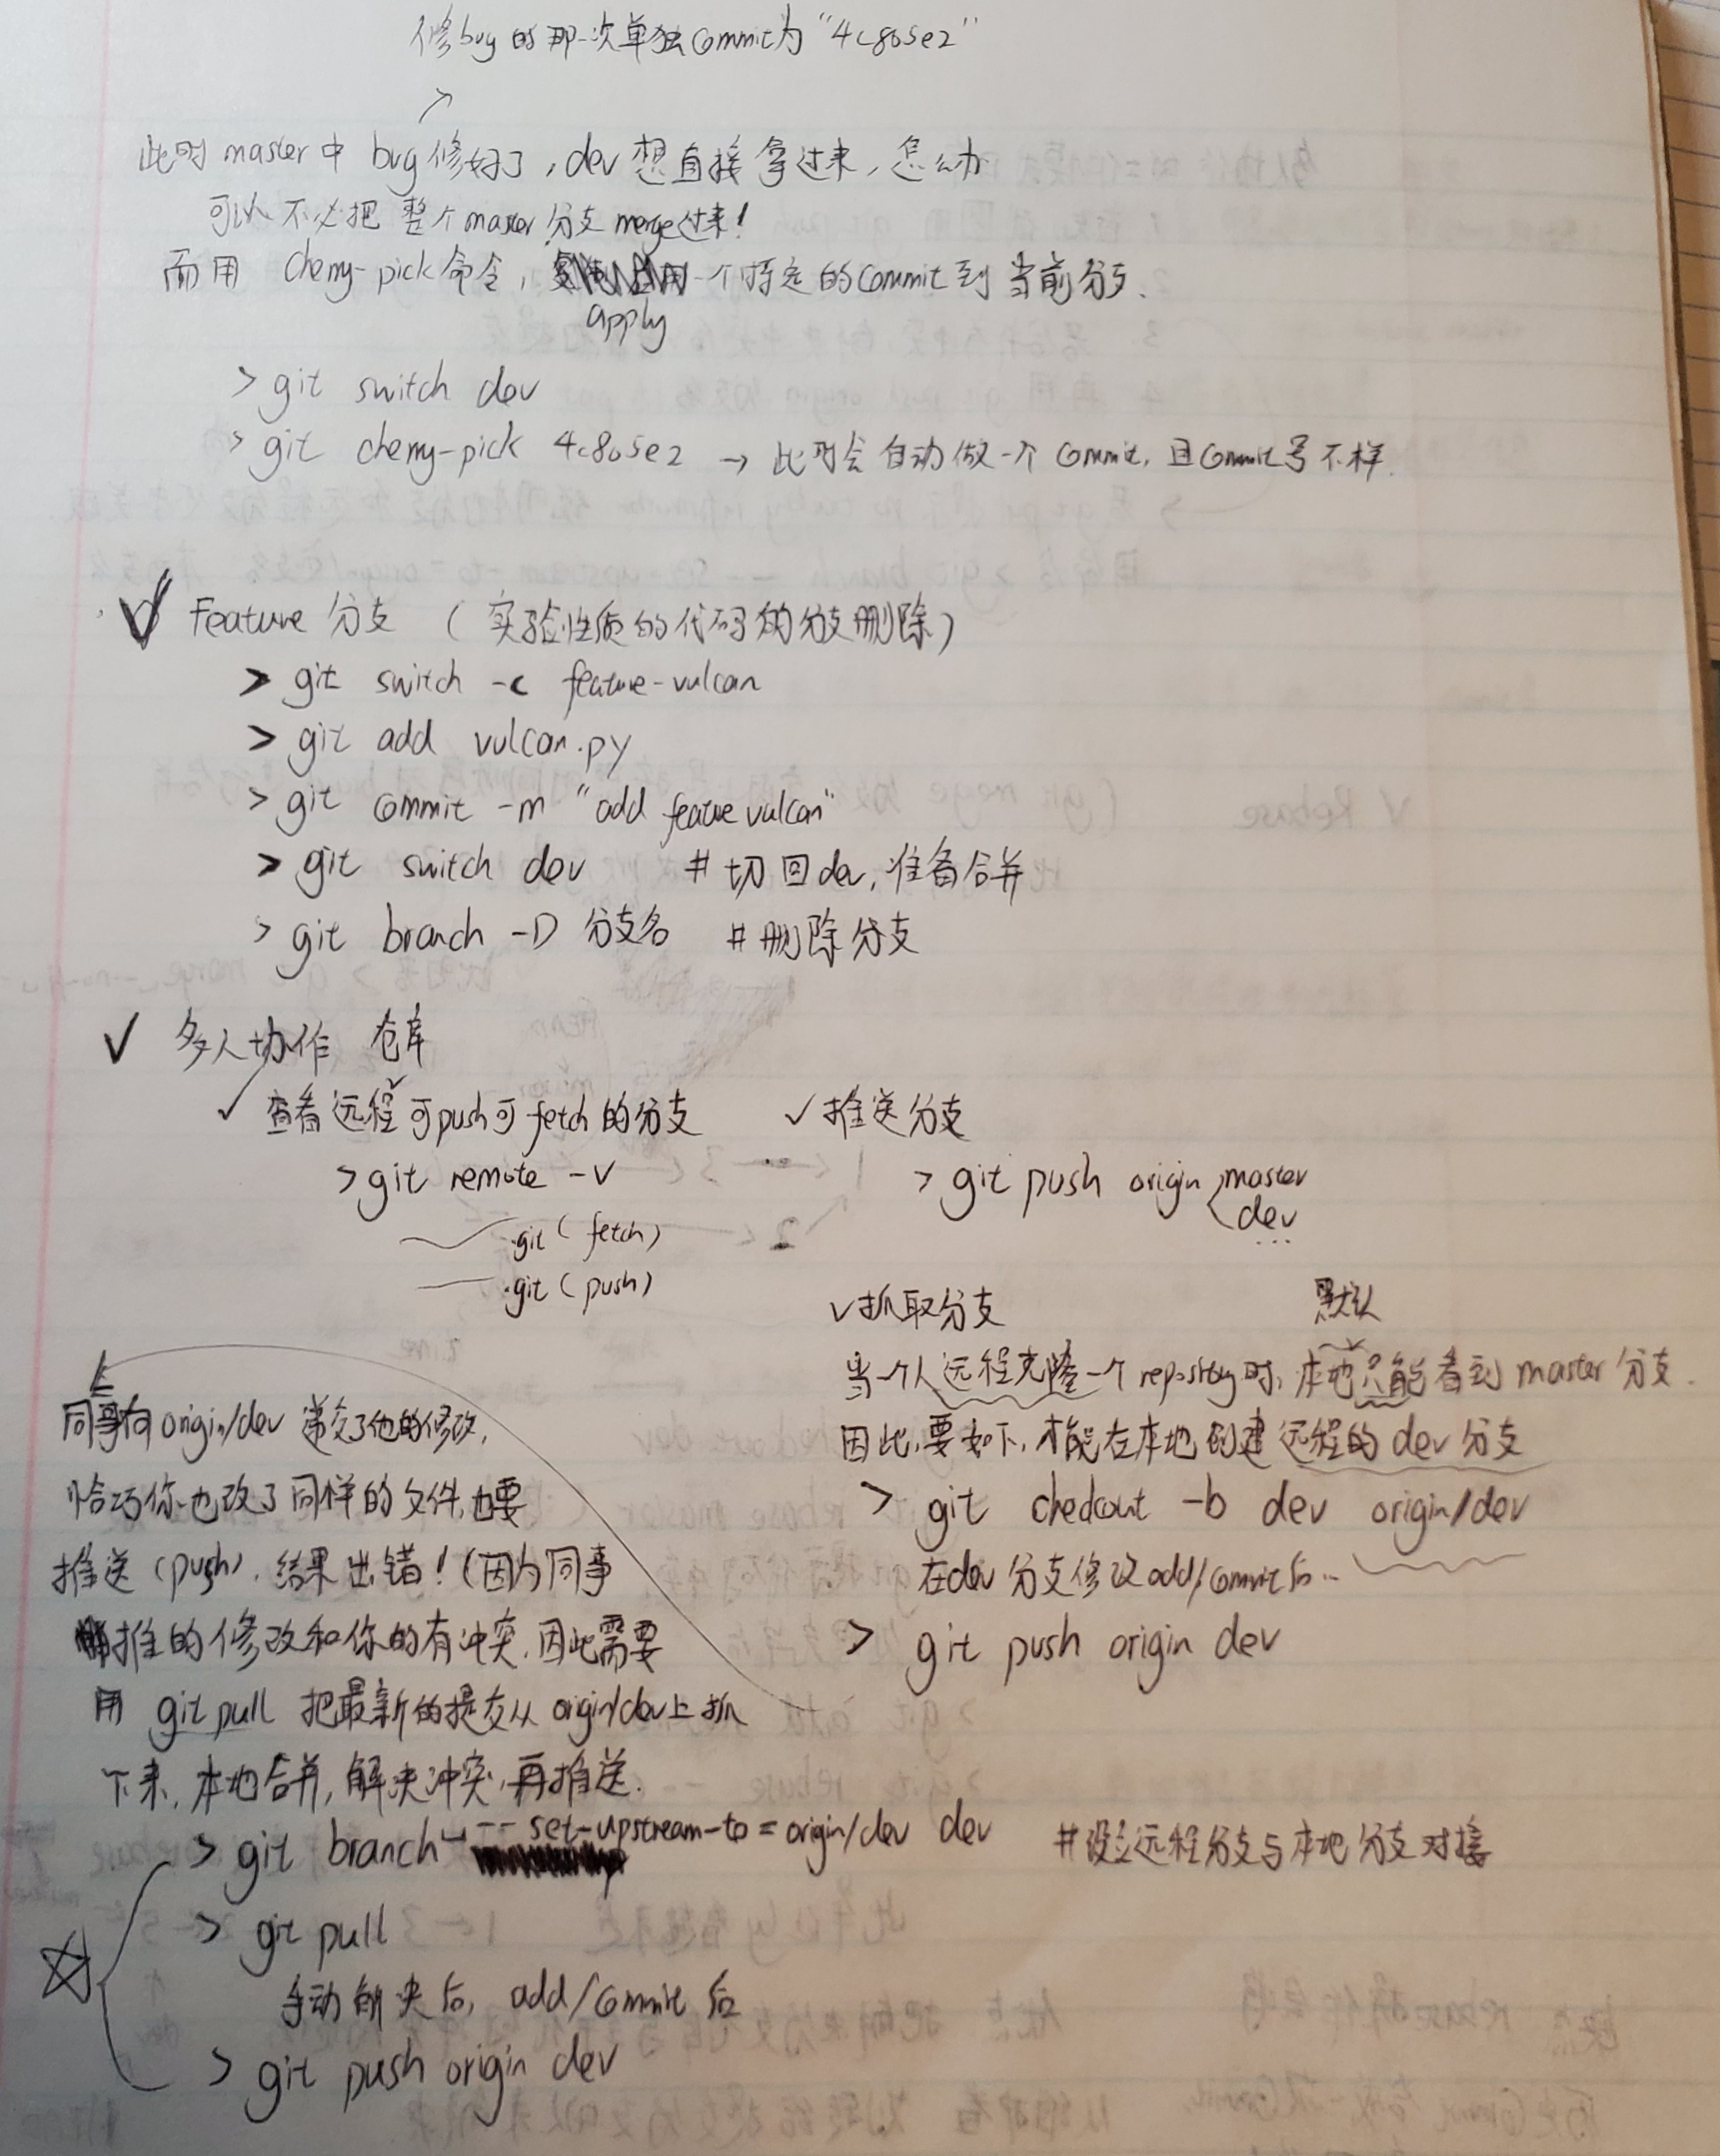 修bug的那一次单独commit为"4c805e2"
此时master中bug修好了,dev想直接拿过来,怎么办
可以不必把整个master分支merge过来!
而用 cherry-pick命令, 一个特定的commit到当前分支.
apply
> git switch dev
> git cherry-pick 4c805e2 → 此时会自动做一个commit, 且commit号不一样.
✓ Feature 分支 (实验性质的代码的分支删除)
> git switch -c feature-vulcan
> git add vulcan.py
> git commit -m "add feature vulcan"
> git switch dev # 切回dev,准备合并
> git branch -D 分支名 # 删除分支
✓ 多人协作 仓库
✓ 查看远程可push可fetch的分支
> git remote -v
.git (fetch)
.git (push)
✓ 推送分支
> git push origin master
dev
...
✓ 抓取分支
默认
当一个人远程克隆一个repository时, 本地只能看到master分支.
因此,要如下,才能在本地创建远程的dev分支
> git checkout -b dev origin/dev
在dev分支修改add/commit后..
> git push origin dev
同事向origin/dev 提交了他的修改,
恰巧你也改了同样的文件,也要
推送(push), 结果出错!(因为同事
推的修改和你的有冲突,因此需要
用 git pull 把最新的提交从 origin/dev上抓
下来, 本地合并,解决冲突,再推送.
> git branch --set-upstream-to=origin/dev dev #设立远程分支与本地分支对接
> git pull
手动解决后, add/commit后
> git push origin dev